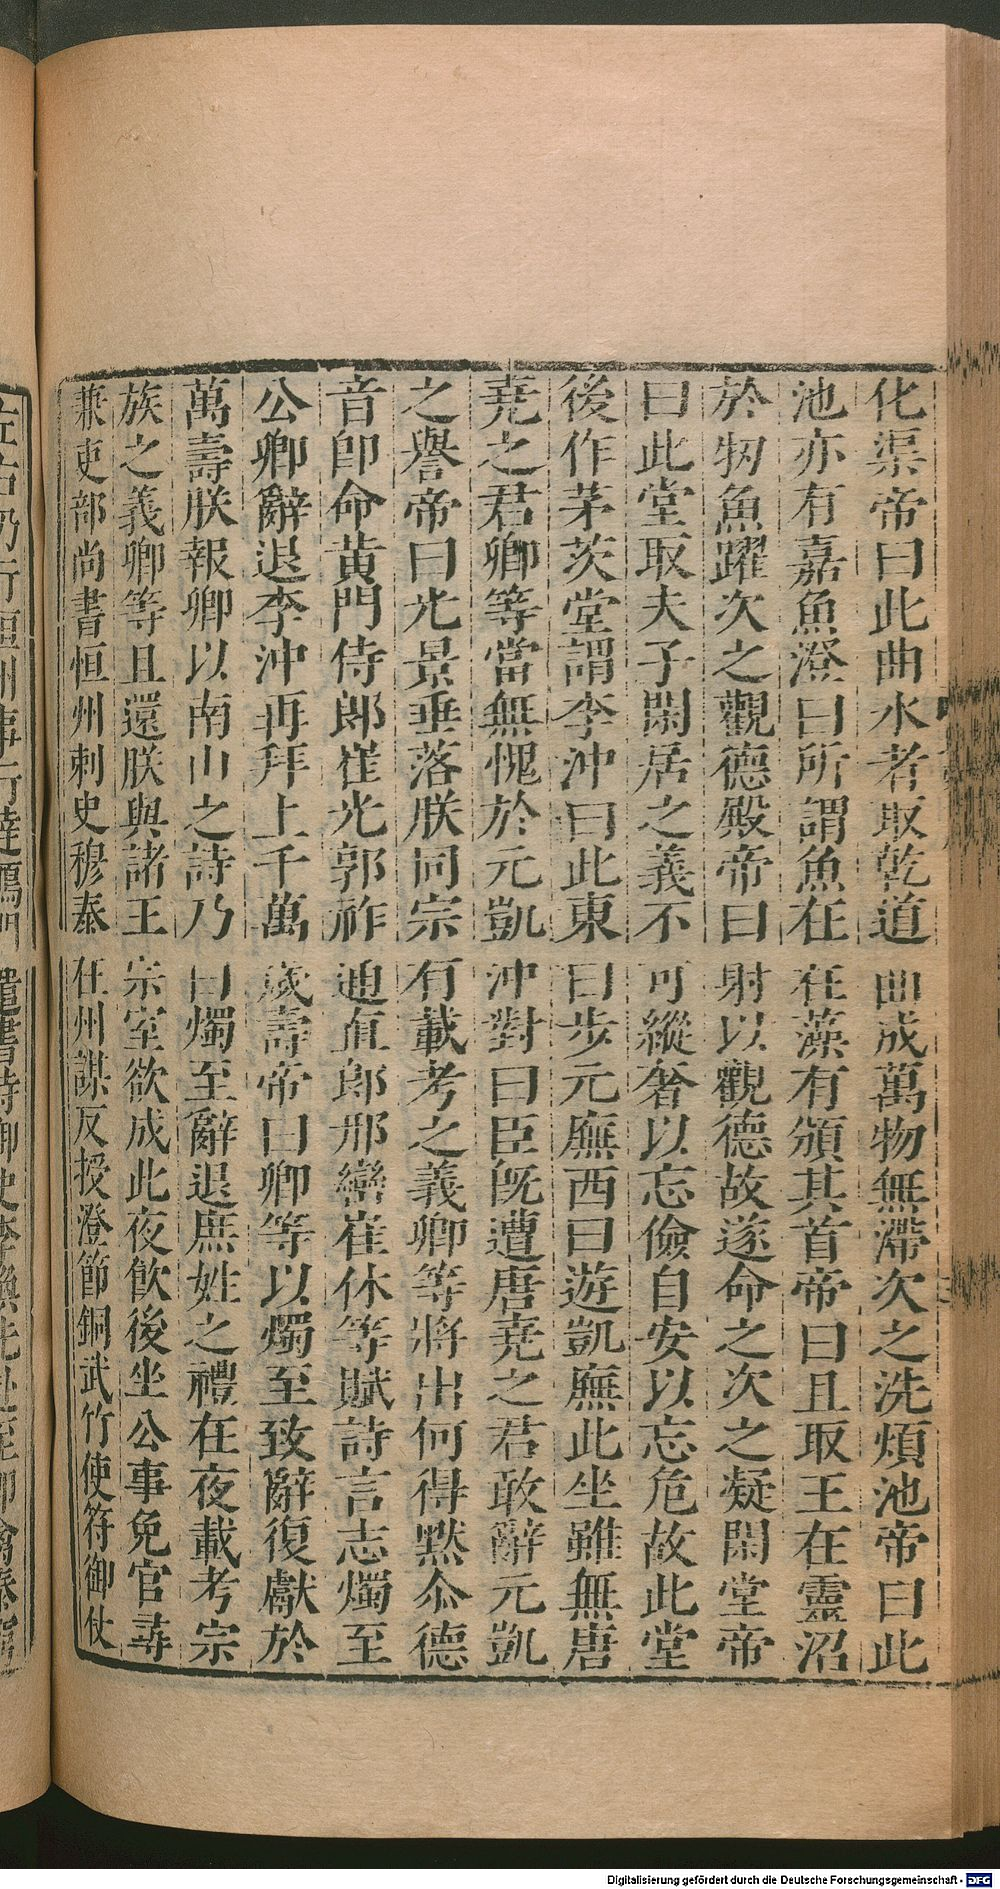 化渠帝曰此曲水者取乾道曲成萬物無滯次之洗煩池帝曰此
池亦有嘉魚澄曰所謂魚在在藻有頒其首帝曰且取王在靈沼
於牣魚躍次之觀德殿帝曰射以觀德故遂命之次之凝閑堂帝
曰此堂取夫子閑居之義不可縱奢以忘儉自安以忘危故此堂
後作茅茨堂謂李沖曰此東曰步元廡西曰遊凱廡此坐雖無唐
堯之君卿等當無愧於元凱沖對曰臣旣遭唐堯之君敢辭元凱
之譽帝曰光景垂落朕同宗有載考之義卿等將出何得黙忝德
音卽命黄門侍郎崔光郭祚通直郎邢巒崔休等賦詩言志燭至
公卿辭退李沖再拜上千萬歲壽帝曰卿等以燭至致辭復獻於
萬壽朕報卿以南山之詩乃曰燭至辭退庶姓之禮在夜載考宗
族之義卿等且還朕與諸王宗室欲成此夜飮後坐公事免官尋
兼吏部尚書恒州刺史穆泰在州謀反授澄節銅武竹使符御仗